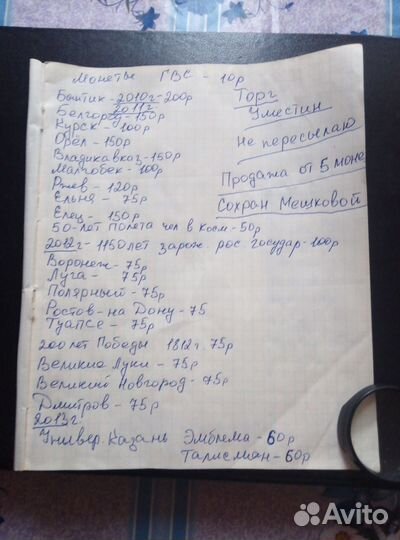 Монеты ГВС - 10р
Бантик - 2010г - 200р
2011г
Белгород - 150р
Курск - 100р
Орёл - 150р
Владикавказ - 150р
Малгобек - 100р
Ржев - 120р
Ельня - 75р
Елец - 150р
50-лет полета чел в косм - 50р
2012г - 1150 лет зарож. рос государ - 100р
Воронеж - 75р
Луга - 75р
Полярный - 75р
Ростов-на Дону - 75
Туапсе - 75р
200 лет Победы 1812г. 75р
Великие Луки - 75р
Великий Новгород - 75р
Дмитров - 75р
2013г
Универ. Казань Эмблема - 60р
Талисман - 60р
Торг
Уместин
Не пересылаю
Продажа от 5 моне
Сохран Мешковой
Avito